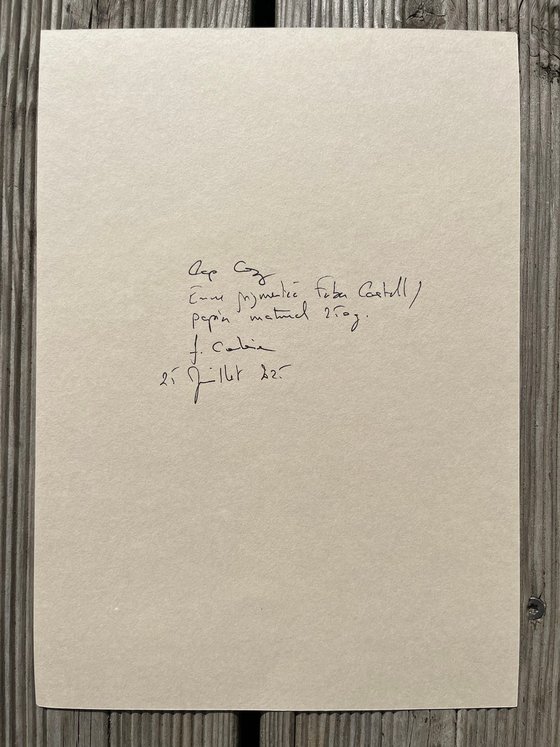 Cap Coz
Encre pigmentée Faber Castell /
papier naturel 250g.
25 Juillet 2025